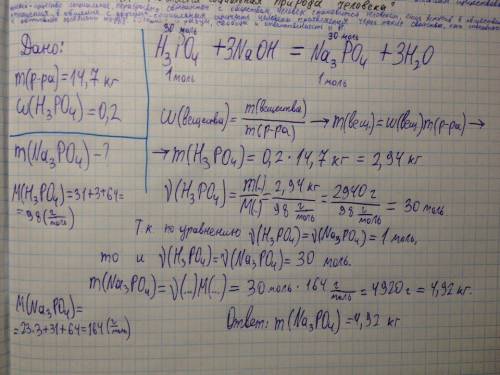 природа человека"
Дано:
m(р-ра)=14,7 кг
ω(H₃PO₄)=0,2
m(Na₃PO₄)-?
M(H₃PO₄)=31+3+64=
=98(г/моль)
M(Na₃PO₄)=
=23·3+31+64=164(г/моль)
30 моль 30 моль
H₃PO₄ + 3NaOH = Na₃PO₄ + 3H₂O
1 моль 1 моль
ω(вещества) = m(вещества)/m(р-ра) → m(вещ)=ω(вещ)m(р-ра) →
→ m(H₃PO₄)=0,2·14,7 кг = 2,94 кг
ν(H₃PO₄) = m(..)/M(..) = 2,94 кг/98 г/моль = 2940 г/98 г/моль = 30 моль
Т.к. по уравнению ν(H₃PO₄)=ν(Na₃PO₄)=1 моль,
то и ν(H₃PO₄)=ν(Na₃PO₄)=30 моль.
m(Na₃PO₄)=ν(...)M(...) = 30 моль·164 г/моль = 4920 г = 4,92 кг.
Ответ: m(Na₃PO₄)=4,92 кг